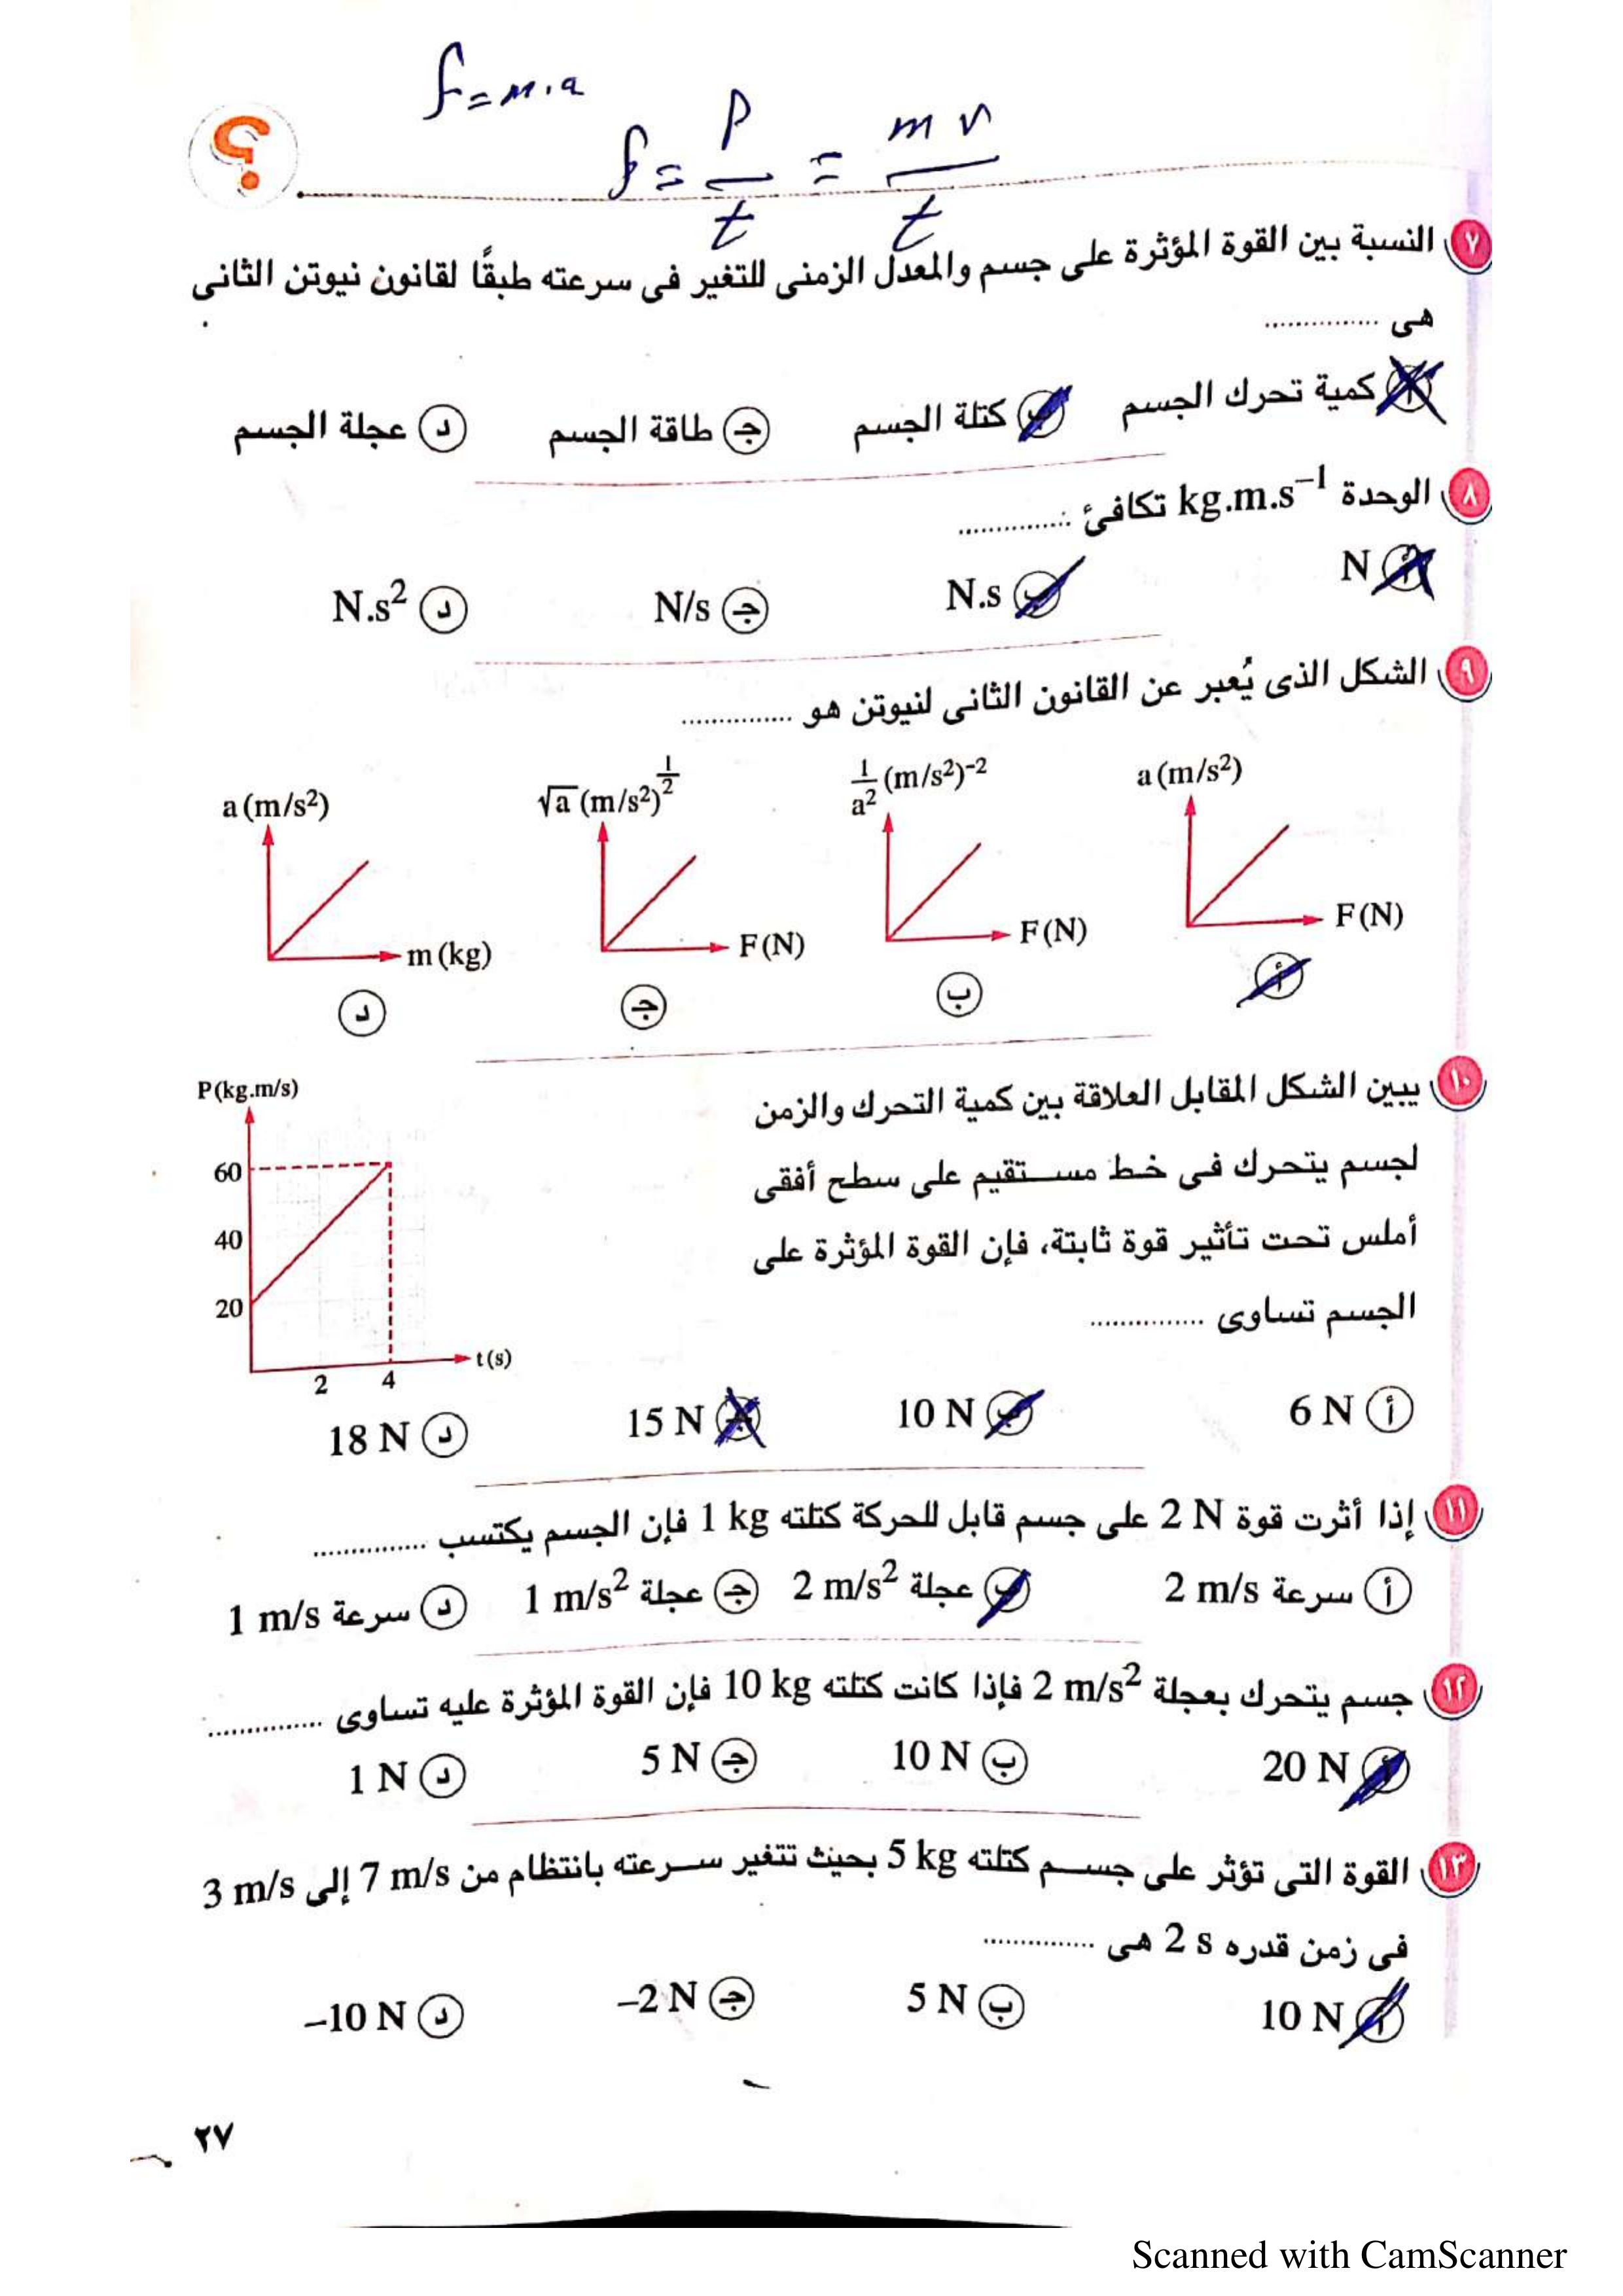 f = m.a
f = P/t = m v/t
؟
٧ النسبة بين القوة المؤثرة على جسم والمعدل الزمنى للتغير فى سرعته طبقًا لقانون نيوتن الثانى
هى ...............
أ كمية تحرك الجسم ب كتلة الجسم جـ طاقة الجسم د عجلة الجسم
٨ الوحدة kg.m.s⁻¹ تكافئ ...............
أ N ب N.s جـ N/s د N.s²
٩ الشكل الذى يُعبر عن القانون الثانى لنيوتن هو ...............
a (m/s²) 1/a² (m/s²)⁻² √a (m/s²)^1/2 a (m/s²)
F (N) F (N) F (N) m (kg)
أ ب جـ د
١٠ يبين الشكل المقابل العلاقة بين كمية التحرك والزمن
لجسم يتحرك فى خط مستقيم على سطح أفقى
أملس تحت تأثير قوة ثابتة، فإن القوة المؤثرة على
الجسم تساوى ...............
P (kg.m/s)
60
40
20
2 4 t (s)
أ 6 N ب 10 N جـ 15 N د 18 N
١١ إذا أثرت قوة 2 N على جسم قابل للحركة كتلته 1 kg فإن الجسم يكتسب ...............
أ سرعة 2 m/s ب عجلة 2 m/s² جـ عجلة 1 m/s² د سرعة 1 m/s
١٢ جسم يتحرك بعجلة 2 m/s² فإذا كانت كتلته 10 kg فإن القوة المؤثرة عليه تساوى ...............
أ 20 N ب 10 N جـ 5 N د 1 N
١٣ القوة التى تؤثر على جسم كتلته 5 kg بحيث تتغير سرعته بانتظام من 7 m/s إلى 3 m/s
فى زمن قدره 2 s هى ...............
أ 10 N ب 5 N جـ –2 N د –10 N
٢٧
Scanned with CamScanner